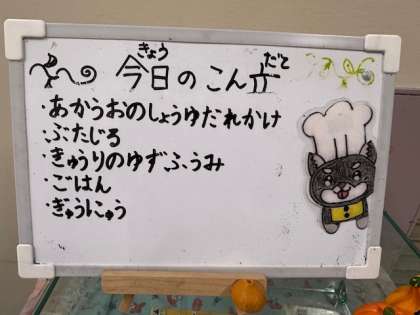 今日のこん立
きょう だて
・あかうおのしょうゆだれかけ
・ぶたじる
・きゅうりのゆずふうみ
・ごはん
・ぎゅうにゅう